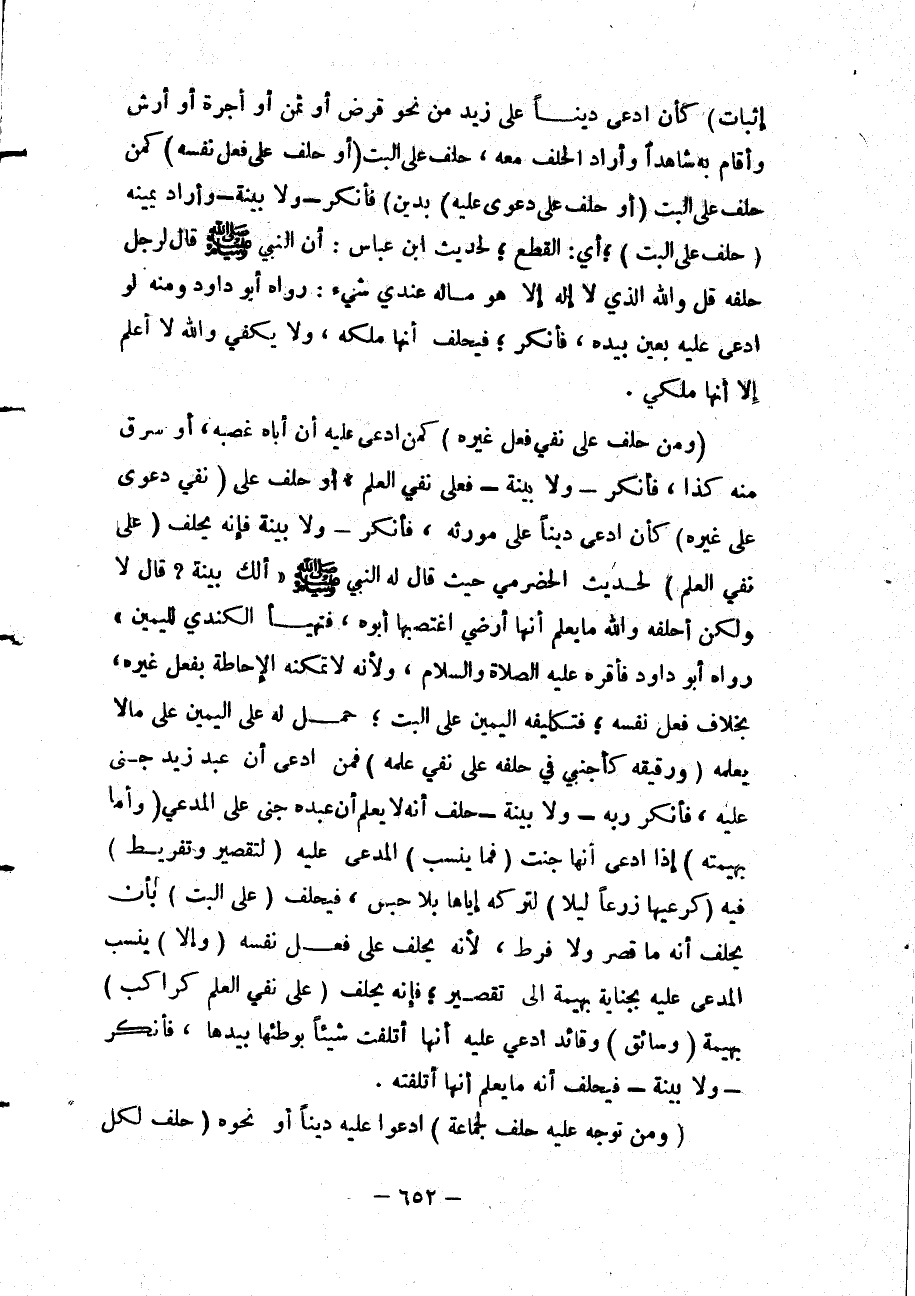 إثبات) كأن ادعى دينـــاً على زيد من نحو قرض أو ثمن أو أجرة أو أرش
وأقام به شاهداً وأراد الحلف معه ، حلف على البت (أو حلف على فعل نفسه) كمن
حلف على البت (أو حلف على دعوى عليه) بدين) فأنكر ـ ولا بينة ـ وأراد يمينه
( حلف على البت ) ؛ أي: القطع ؛ لحديث ابن عباس : أن النبي ﷺ قال لرجل
حلفه قل والله الذي لا إله إلا هو مـاله عندي شيء : رواه أبو داود ومنه لو
ادعى عليه بعين بيده ، فأنكر ؛ فيحلف أنها ملكه ، ولا يكفي والله لا أعلم
إلا أنها ملكي .
(ومن حلف على نفي فعل غيره ) كمن ادعى عليه أن أباه غصبه ، أو سرق
منه كذا ، فأنكر ـ ولا بينة ـ فعلى نفي العلم * أو حلف على ( نفي دعوى
على غيره) كأن ادعى ديناً على مورثه ، فأنكر ـ ولا بينة فإنه يحلف ( على
نفي العلم ) لحـديث الحضرمي حيث قال له النبي ﷺ « ألك بينة ؟ قال لا
ولكن أحلفه والله مايعلم أنها أرضي اغتصبها أبوه ، فتهيـأ الكندي لليمين »
رواه أبو داود فأقره عليه الصلاة والسلام ، ولأنه لاتمكنه الإحاطة بفعل غيره ،
بخلاف فعل نفسه ؛ فتكليفه اليمين على البت ؛ حمـــل له على اليمين على مالا
يعلمه ( ورقيقه كأجنبي في حلفه على نفي علمه ) فمن ادعى أن عبد زيد جـنى
عليه ، فأنكر ربه ـ ولا بينة ـ حلف أنه لا يعلم أن عبده جنى على المدعي ( وأما
بهيمته ) إذا ادعى أنها جنت ( فما ينسب ) المدعى عليه ( لتقصير وتفريـط )
فيه (كرعيها زرعاً ليلا ) لتركه إياها بلا حبس ، فيحلف ( على البت ) بأن
يحلف أنه ما قصر ولا فرط ، لأنه يحلف على فعـــل نفسه ( وإلا ) ينسب
المدعى عليه بجناية بهيمة الى تقصـير ؛ فإنه يحلف ( على نفي العلم كراكب )
بهيمة ( وسائق ) وقائد ادعي عليه أنها أتلفت شيئاً بوطئها بيدها ، فأنكر
ـ ولا بينة ـ فيحلف أنه مايعلم أنها أتلفته .
( ومن توجه عليه حلف لجماعة ) ادعوا عليه ديناً أو نحوه ( حلف لكل
ـ ٦٥٢ ـ